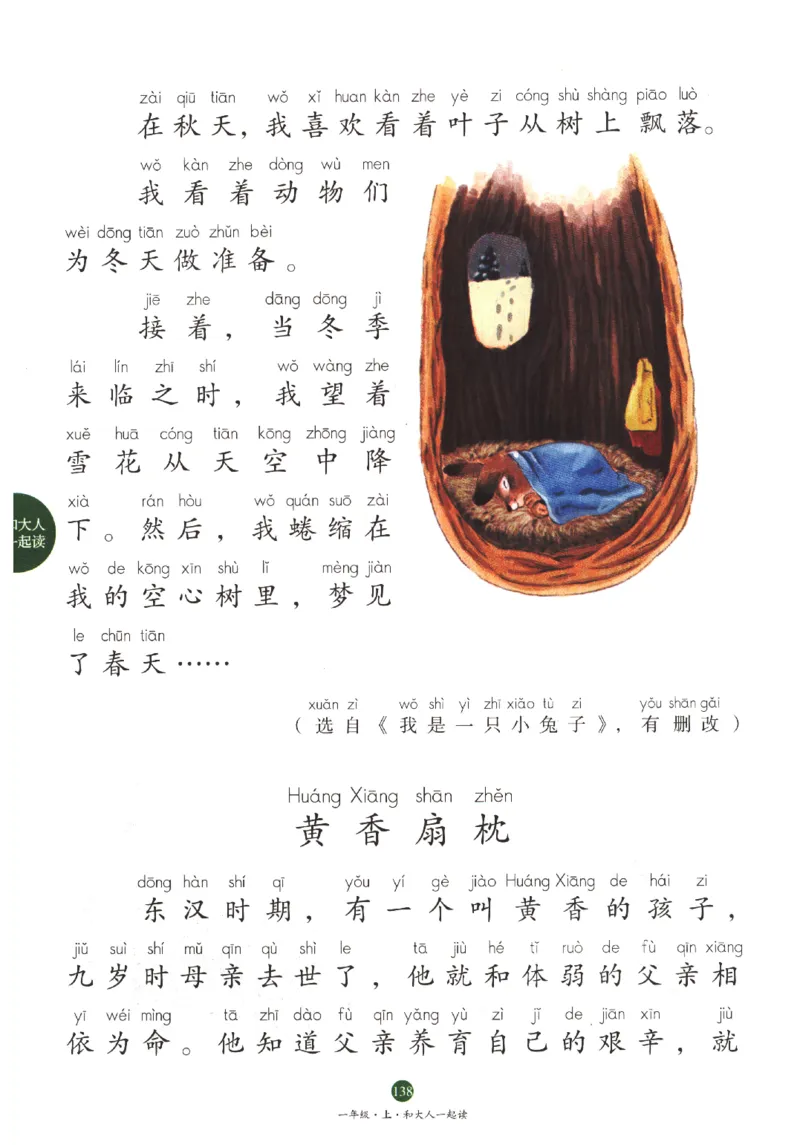 zài qiū tiān wǒ xǐ huan kàn zhe yè zi cóng shù shàng piāo luò
在秋天，我喜欢看着叶子从树上飘落。
wǒ kàn zhe dòng wù men
我看着动物们
wèi dōng tiān zuò zhǔn bèi
为冬天做准备。
jiē zhe dāng dōng jì
接着，当冬季
lái lín zhī shí wǒ wàng zhe
来临之时，我望着
xuě huā cóng tiān kōng zhōng jiàng
雪花从天空中降
xià rán hòu wǒ quán suō zài
下。然后，我蜷缩在
wǒ de kōng xīn shù lǐ mèng jiàn
我的空心树里，梦见
le chūn tiān
了春天……
xuǎn zì wǒ shì yì zhī xiǎo tù zi yǒu shān gǎi
（选自《我是一只小兔子》，有删改）
和大人
一起读
Huáng Xiāng shān zhěn
黄香扇枕
dōng hàn shí qī yǒu yí gè jiào Huáng Xiāng de hái zi
东汉时期，有一个叫黄香的孩子，
jiǔ suì shí mǔ qīn qù shì le tā jiù hé tǐ ruò de fù qīn xiāng
九岁时母亲去世了，他就和体弱的父亲相
yī wéi mìng tā zhī dào fù qīn yǎng yù zì jǐ de jiān xīn jiù
依为命。他知道父亲养育自己的艰辛，就
138
一年级·上·和大人一起读